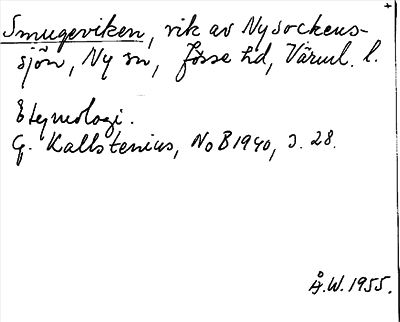 Smugeviken, vik av Nysockens-
sjön, Ny sn, Jösse hd, Värml. l.
Etymologi.
G. Kallstenius, NoB 1940, s. 28.
Å.W. 1955.